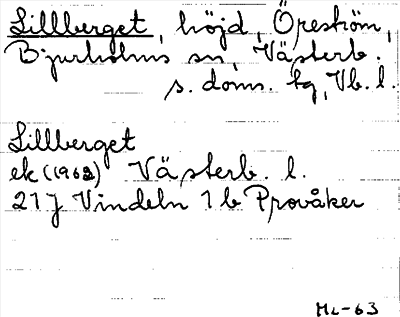 Lillberget, höjd, Öreström,
Bjurholms sn, Västerb.
s. doms. tg, Vb. l.
Lillberget
ek (1962) Västerb. l.
21J Vindeln 1b Provåker
ML-63